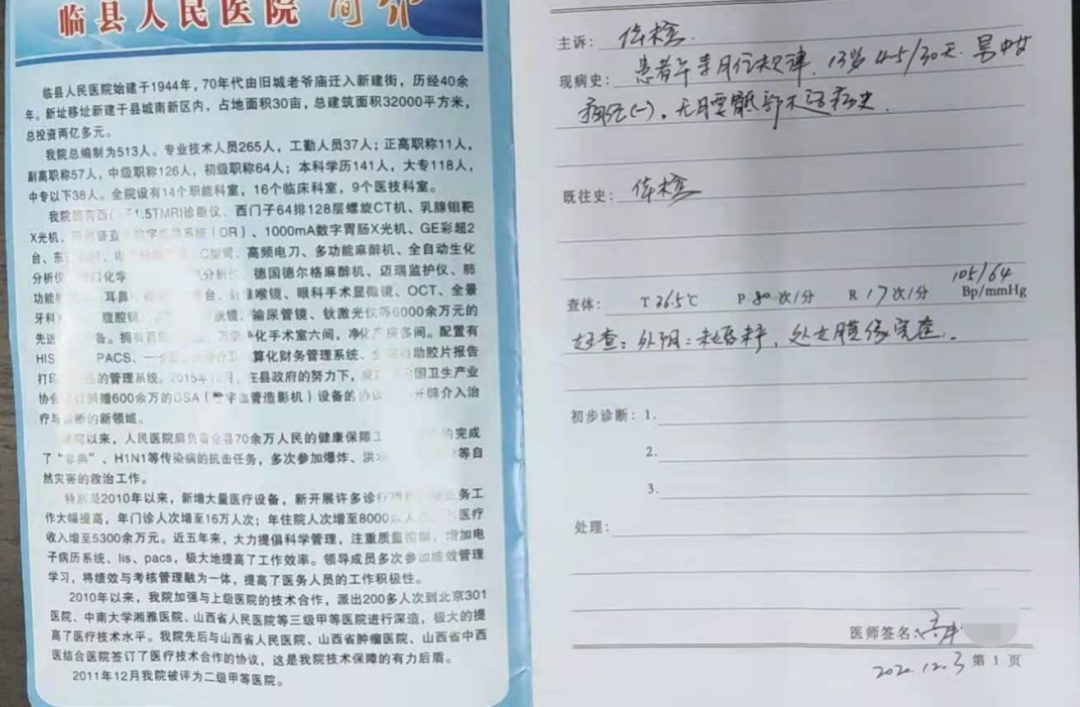 临县人民医院 简介
临县人民医院始建于1944年，70年代由旧城老爷庙迁入新建街，历经40余
年。新址移址新建于县城南新区内，占地面积30亩，总建筑面积32000平方米，
总投资两亿多元。
我院总编制为513人。专业技术人员265人，工勤人员37人；正高职称11人，
副高职称57人，中级职称126人，初级职称64人；本科学历141人，大专118人，
中专以下38人。全院设有14个职能科室，16个临床科室，9个医技科室。
我院拥有西门子1.5TMRI诊断仪、西门子64排128层螺旋CT机、乳腺钼靶
X光机、数字 系统（DR）、1000mA数字胃肠X光机、GE彩超2
台、 C型臂、高频电刀、多功能麻醉机、全自动生化
分析仪、进口化学 分析仪、德国德尔格麻醉机、迈瑞监护仪、肺
功能 耳鼻 台、 喉镜、眼科手术显微镜、OCT、全景
牙科 腹腔镜、 镜、输尿管镜、钬激光仪等6000余万元的
先进 备。拥有百级、万级净化手术室六间，净化产房多间。配置有
HIS PACS、一卡 算化财务管理系统、 自助胶片报告
打印 的管理系统。2015年12月，在县政府的努力下， 国卫生产业
协会 捐赠600余万的DSA（数字血管造影机）设备的协议 开辟介入治
疗与诊断的新领域。
以来，人民医院肩负着全县70余万人民的健康保障工 的完成
了“非典”、H1N1等传病的抗击任务，多次参加爆炸、洪水 等自
然灾害的救治工作。
特别是2010年以来，新增大量医疗设备，新开展许多诊疗项目 业务工
作大幅提高，年门诊人次增至16万人次；年住院人次增至8000 医疗
收入增至5300余万元。近五年来，大力提倡科学管理，注重质量控制，增加电
子病历系统、lis、pacs，极大地提高了工作效率。领导成员多次参加绩效管理
学习，将绩效与考核管理融为一体，提高了医务人员的工作积极性。
2010年以来，我院加强与上级医院的技术合作，派出200多人次到北京301
医院、中南大学湘雅医院、山西省人民医院等三级甲等医院进行深造，极大的提
高了医疗技术水平。我院先后与山西省人民医院、山西省肿瘤医院、山西省中西
医结合医院签订了医疗技术合作的协议，这是我院技术保障的有力后盾。
2011年12月我院被评为二级甲等医院。
主诉：体检.
现病史：患者 月 规律，13岁 4-5/30天.
(-)，无腰骶部不适病史.
既往史：体检
查体： T 36.5℃ P 80次/分 R 17次/分 105/64 Bp/mmHg
妇查：外阴：未婚未产，处女膜缘完整.
初步诊断：1.
2.
3.
处理：
医师签名：
2020.12.3 第 1 页